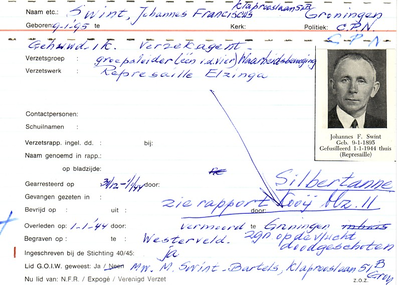 Naam etc.: Swint, Johannes Franciscus Klaproselaan 51B Groningen
Geboren 9-1-'95 te Kerk: Politiek: C.P.N
Gehuwd. ik. Verz. agent.
Verzetsgroep : groepsleider (één i.d. vier)
Verzetswerk : Represaille Elzinga
Contactpersonen:
Schuilnaam :
Verzetsrapp. ingel. dd. : bij:
Naam genoemd in rapp.:
op bladzijde:
Gearresteerd op door: Silbertanne
Gevangen gezeten in : zie rapport blz. 11
Bevrijd op : uit: door:
Overleden op : 1-1-'44 door: vermoord te Groningen
Begraven op : te Westerveld. zgn op de vlucht doodgeschoten
Ingeschreven bij de Stichting 40/45: ja
Lid G.O.I.W. geweest: Ja / Neen Mw. M. Swint-Bartels, Klaproselaan 51 B Gron
Nu lid van: N.F.R. / Expogé / Verenigd Verzet z.o.z.
Johannes F. Swint
Geb. 9-1-1895
Gefusilleerd 1-1-1944 thuis
(Represaille)